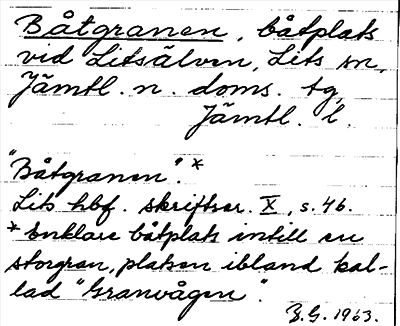 Båtgranen, båtplats
vid Litsälven, Lits sn,
Jämtl. n. doms. tg,
Jämtl. l.
"Båtgranen".*
Lits hbf. skriftser. X, s. 46.
* Enklare båtplats intill en
storgran, platsen ibland kal-
lad "Granvågen".
Z.G. 1963.